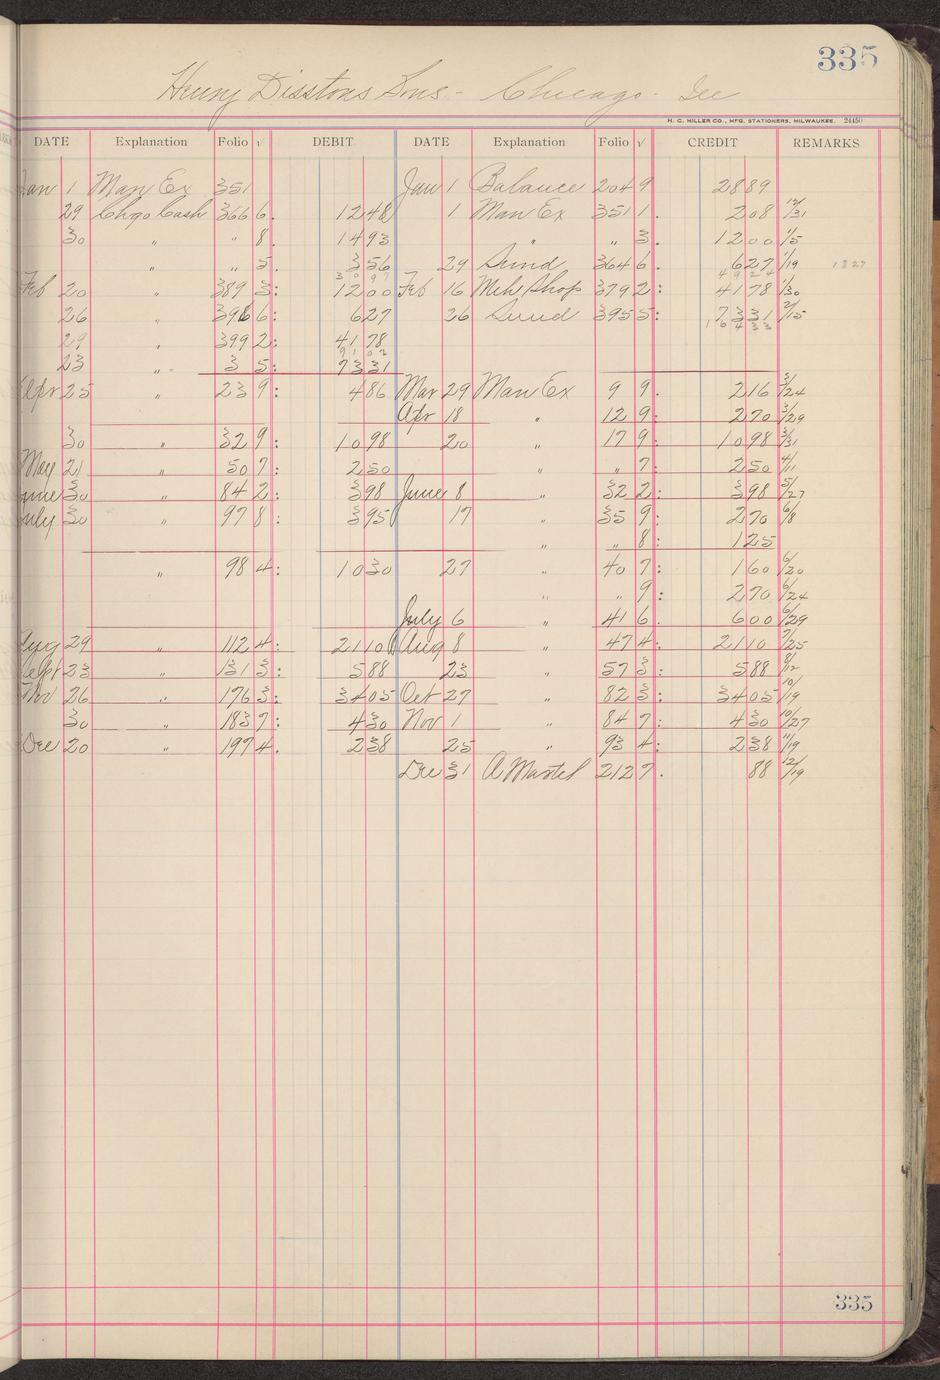 335
Henry Disstons Sons - Chicago - Ill
H. C. MILLER CO., MFG. STATIONERS, MILWAUKEE. 24450
DATE Explanation Folio √ DEBIT DATE Explanation Folio √ CREDIT REMARKS
Jan 1 Man Ex 351 Jan 1 Balance 204 9 28 89
29 Chgo Cash 366 6. 12 48 1 Man Ex 351 1. 2 08 12/31
30 " " 8. 14 93 " " 3. 12 00 1/5
" " 5. 3 56 29 Sund 364 6. 6 27 1/19 1827
30 97 49 24
Feb 20 " 389 3: 12 00 Feb 16 Mch Shop 379 2: 41 78 1/30
26 " 396 6: 6 27 26 Sund 395 5: 73 31 2/15
164 33
29 " 399 2: 41 78
91 02
23 " 3 5: 73 31
Apr 25 " 23 9: 4 86 Mar 29 Man Ex 9 9. 2 16 3/24
Apr 18 " 12 9: 2 70 3/29
30 " 32 9: 10 98 20 " 17 9: 10 98 3/31
May 21 " 50 7: 2 50 " " 7: 2 50 4/11
June 30 " 84 2: 3 98 June 8 " 32 2: 3 98 5/27
July 30 " 97 8: 3 95 17 " 35 9: 2 70 6/8
" " 8: 1 25
" 98 4: 10 30 27 " 40 7: 1 60 6/20
" " 9: 2 70 6/24
July 6 " 41 6. 6 00 6/29
Aug 29 " 112 4: 21 10 Aug 8 " 47 4: 21 10 7/25
Sept 23 " 131 3: 5 88 23 " 57 3: 5 88 8/12
Nov 26 " 176 3: 34 05 Oct 27 " 82 3: 34 05 10/19
30 " 183 7: 4 30 Nov 1 " 84 7: 4 30 10/27
Dec 20 " 197 4. 2 38 25 " 93 4: 2 38 11/19
Dec 31 A Martel 212 7. 88 12/19
335